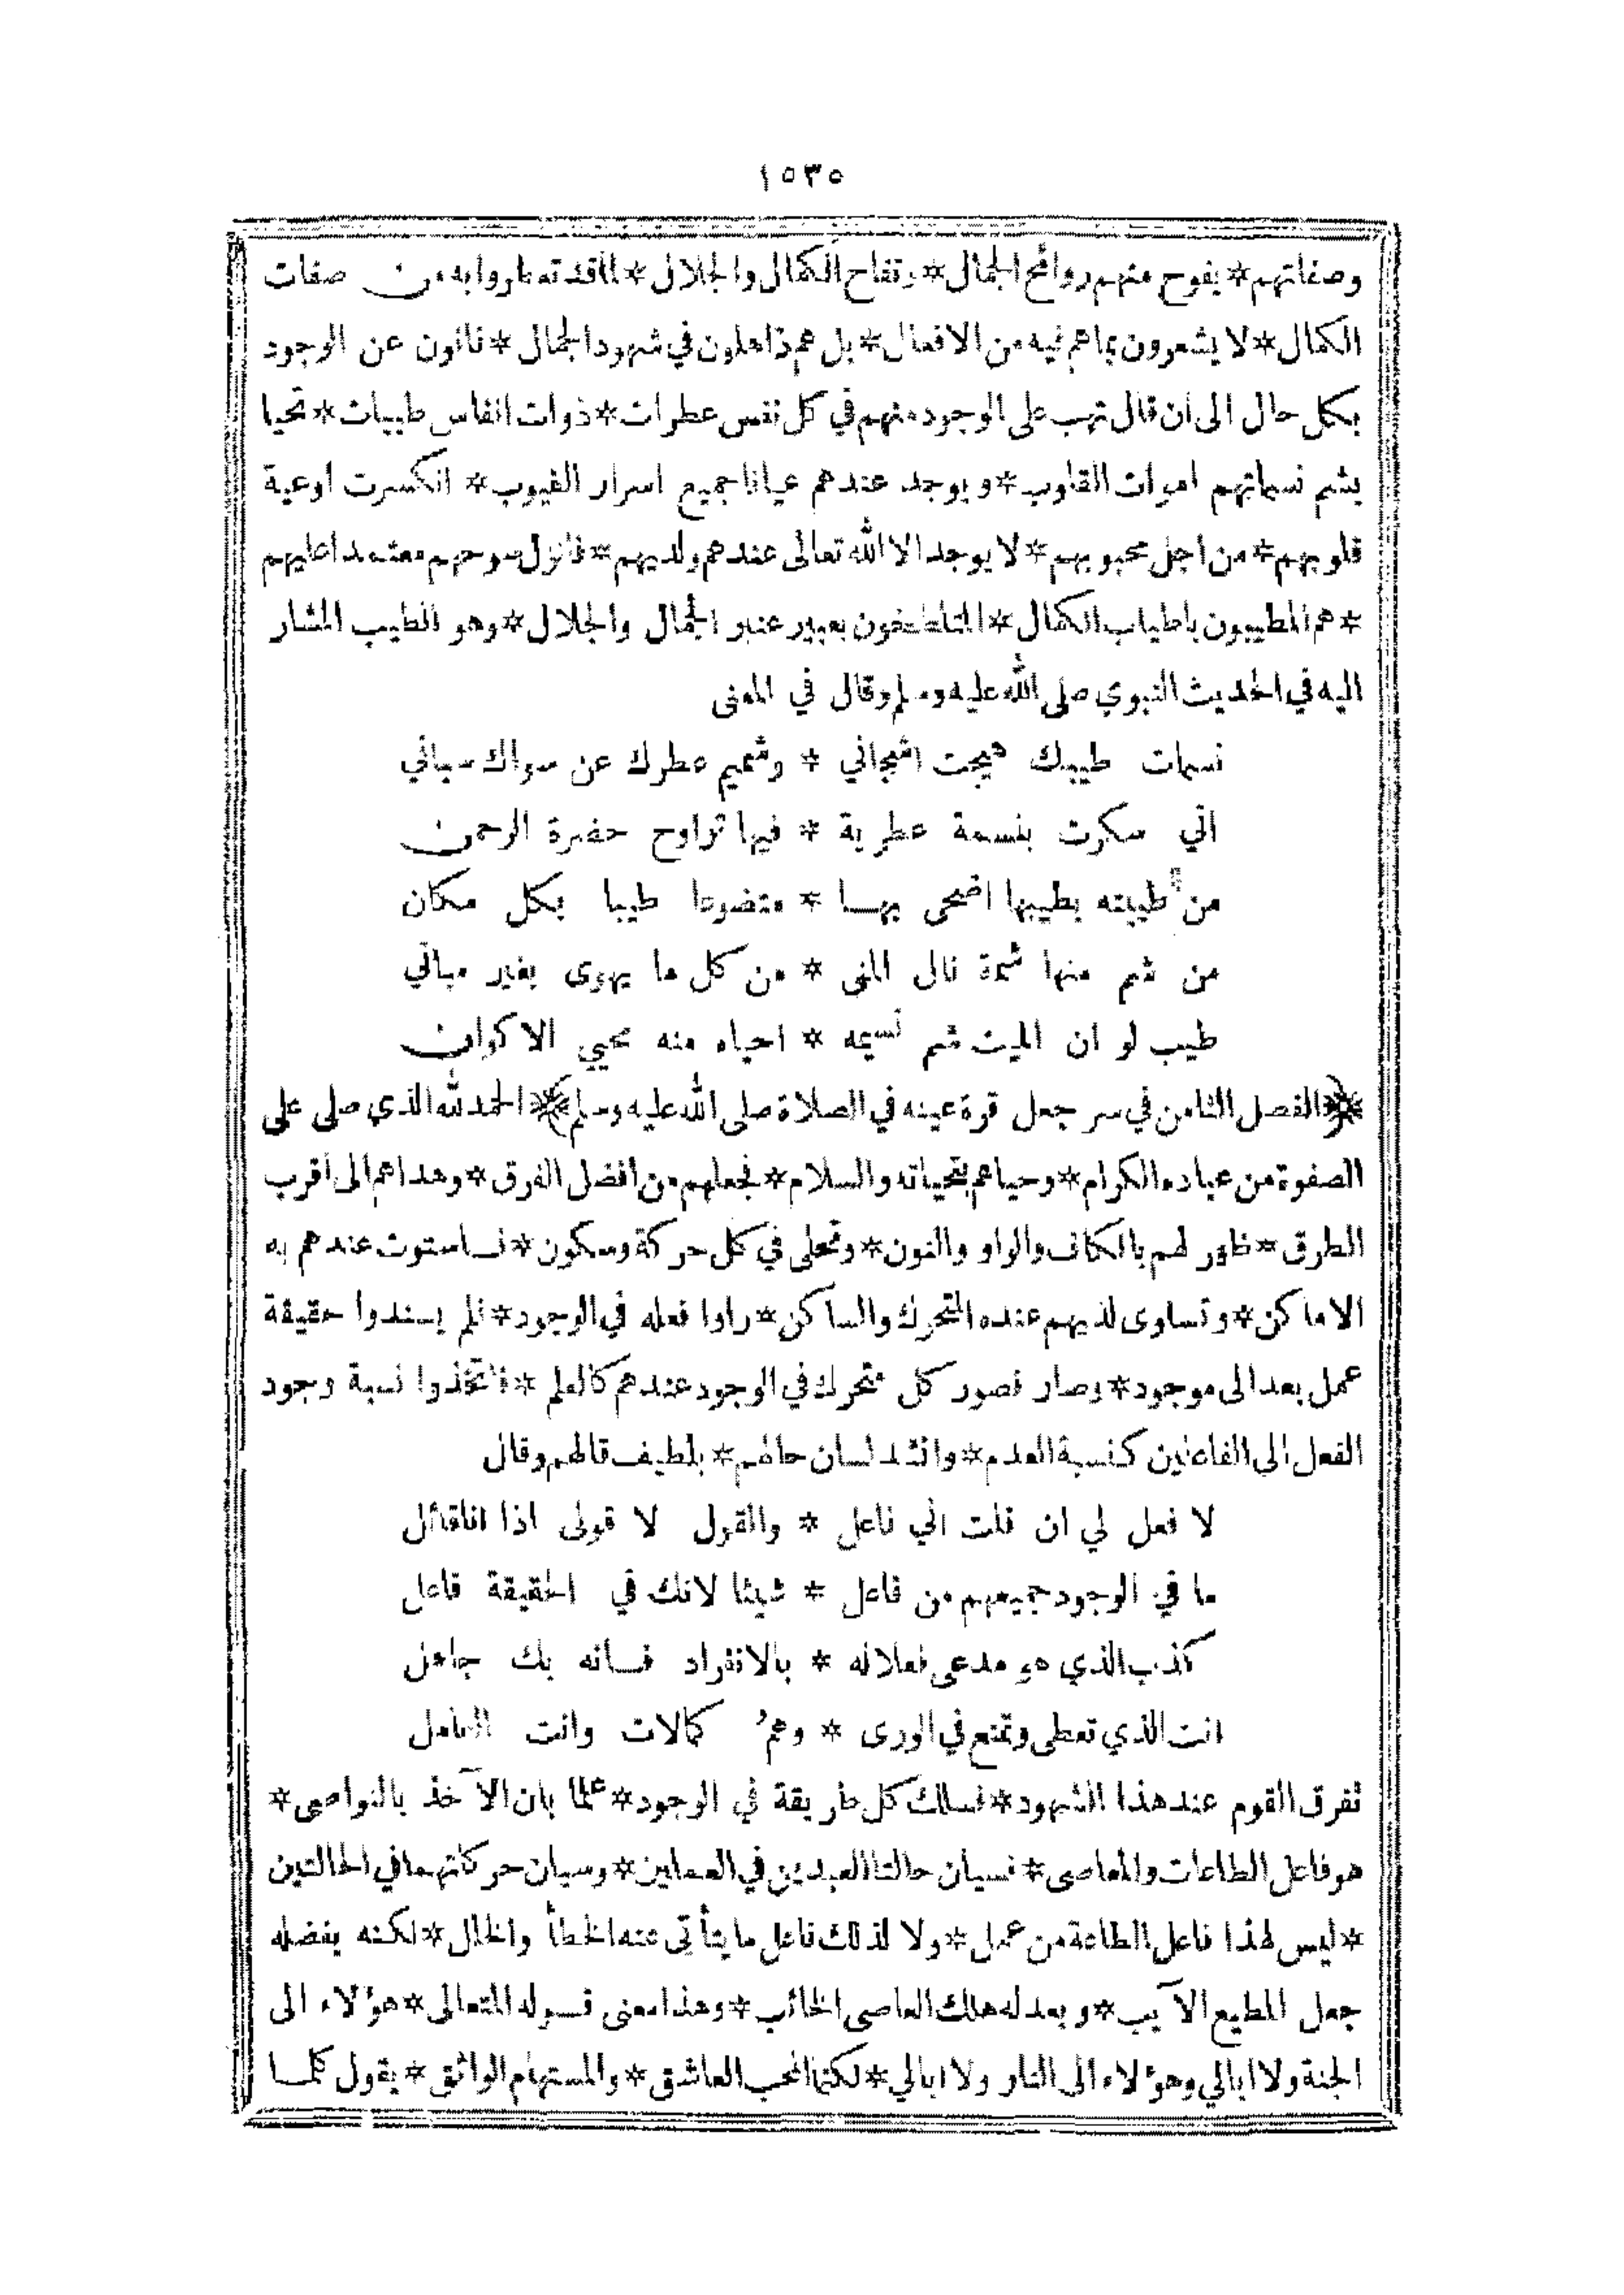 ١٥٣٥
وصفاتهم * يفوح منهم روائح الجمال * وتفاح الكمال والجلال * لما قد تعطروا به من صفات
الكمال * لا يشعرون بما هم فيه من الافعال * بل هم ذاهلون في شهود الجمال * فانون عن الوجود
بكل حال الى ان قال تهب على الوجود منهم في كل نفس عطرات * ذوات انفاس طيبات * تحيا
بشم نسماتهم اموات القلوب * ويوجد عندهم عيانا جميع اسرار الغيوب * انكسرت اوعية
قلوبهم * من اجل محبوبهم * لا يوجد الا الله تعالى عندهم ولديهم * فانزل بسوحهم معتمدا عليهم
* هم المطيبون باطياب الكمال * المتلطخون بعبير عنبر الجمال والجلال * وهو الطيب المشار
اليه في الحديث النبوي صلى الله عليه وسلم وقال في المعنى
نسمات طيبك هيجت اشجاني * وشميم عطرك عن سواك سباني
اني سكرت بنسمة عطرية * فيها تراوح حضرة الرحمن
من طيبته بطيبها اضحى بها * متضوعا طيبا بكل مكان
من شم منها شمة نال المنى * من كل ما يهوى بغير مباني
طيب لو ان الميت شم نسيمه * احياه منه محيي الاكوان
﴿* الفصل الثامن في سر جعل قرة عينه في الصلاة صلى الله عليه وسلم *﴾ الحمد لله الذي صلى على
الصفوة من عباده الكرام * وحياهم بتحياته والسلام * فجعلهم من افضل الفرق * وهداهم الى اقرب
الطرق * ظهر لهم بالكاف والواو والنون * وتجلى في كل حركة وسكون * فاستوت عندهم به
الاماكن * وتساوى لديهم عنده المتحرك والساكن * راوا فعله في الوجود * فلم يسندوا حقيقة
عمل بعد الى موجود * وصار قصور كل متحرك في الوجود عندهم كالعلم * فاتخذوا نسبة وجود
الفعل الى الفاعلين كنسبة العدم * وانشد لسان حالهم * بلطيف قالهم وقال
لا فعل لي ان قلت اني فاعل * والقول لا قولى اذا انا قائل
ما في الوجود جميعهم من فاعل * شيئا لانك في الحقيقة فاعل
كذب الذي هو مدعى فعلا له * بالانفراد فانه بك جاهل
انت الذي تعطى وتمنع في الورى * وهمُ كمالات وانت العامل
تفرق القوم عند هذا الشهود * فسلك كل طريقة في الوجود * علما بان الآخذ بالنواصى *
هو فاعل الطاعات والمعاصى * فسيان حالتا العبدين في العملين * وسيان حركاتهما في الحالتين
* ليس لهذا فاعل الطاعة من عمل * ولا لذلك فاعل ما يتأتى عنه الخطأ والخلل * لكنه بفضله
جعل المطيع الآيب * وبعدله هلك العاصى الخائب * وهذا معنى قوله المتعالى * هؤلاء الى
الجنة ولا ابالي وهؤلاء الى النار ولا ابالي * لكنما المحب العاشق * والمستهام الواثق * يقول كلما